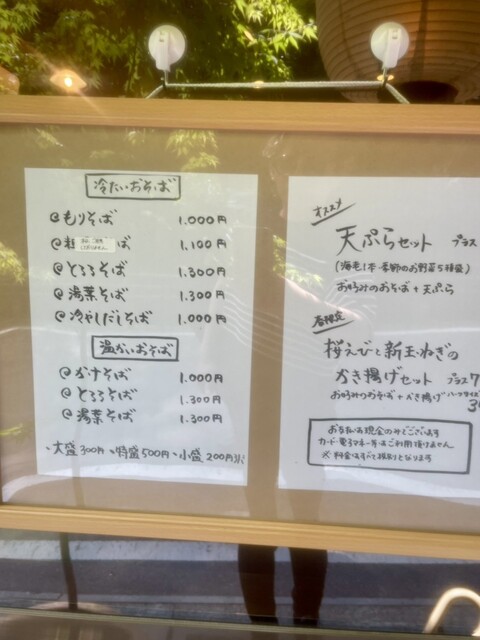 冷たいおそば
@もりそば 1.000円
@粗 ば 1.100円
@とろろそば 1.300円
@湯葉そば 1.300円
@冷やしだしそば 1.000円
温かいおそば
@かけそば 1.000円
@とろろそば 1.300円
@湯葉そば 1.300円
・大盛300円・特盛500円・小盛200円
オススメ
天ぷらセット プラス
(海老1本・季節のお野菜5種袋)
お好みのおそば+天ぷら
春限定
桜えびと新玉ねぎの
かき揚げセット プラス7
お好みのおそば+かき揚げ ハーフサイズ
お支払は現金のみでございます
カード・電子マネー等はご利用頂けません
※料金はすべて税込となります